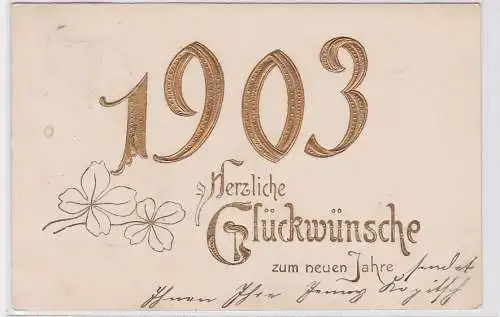 1903
Herzliche
Glückwünsche
zum neuen Jahre sendet
Ihnen Ihre Jenny Kopitsch